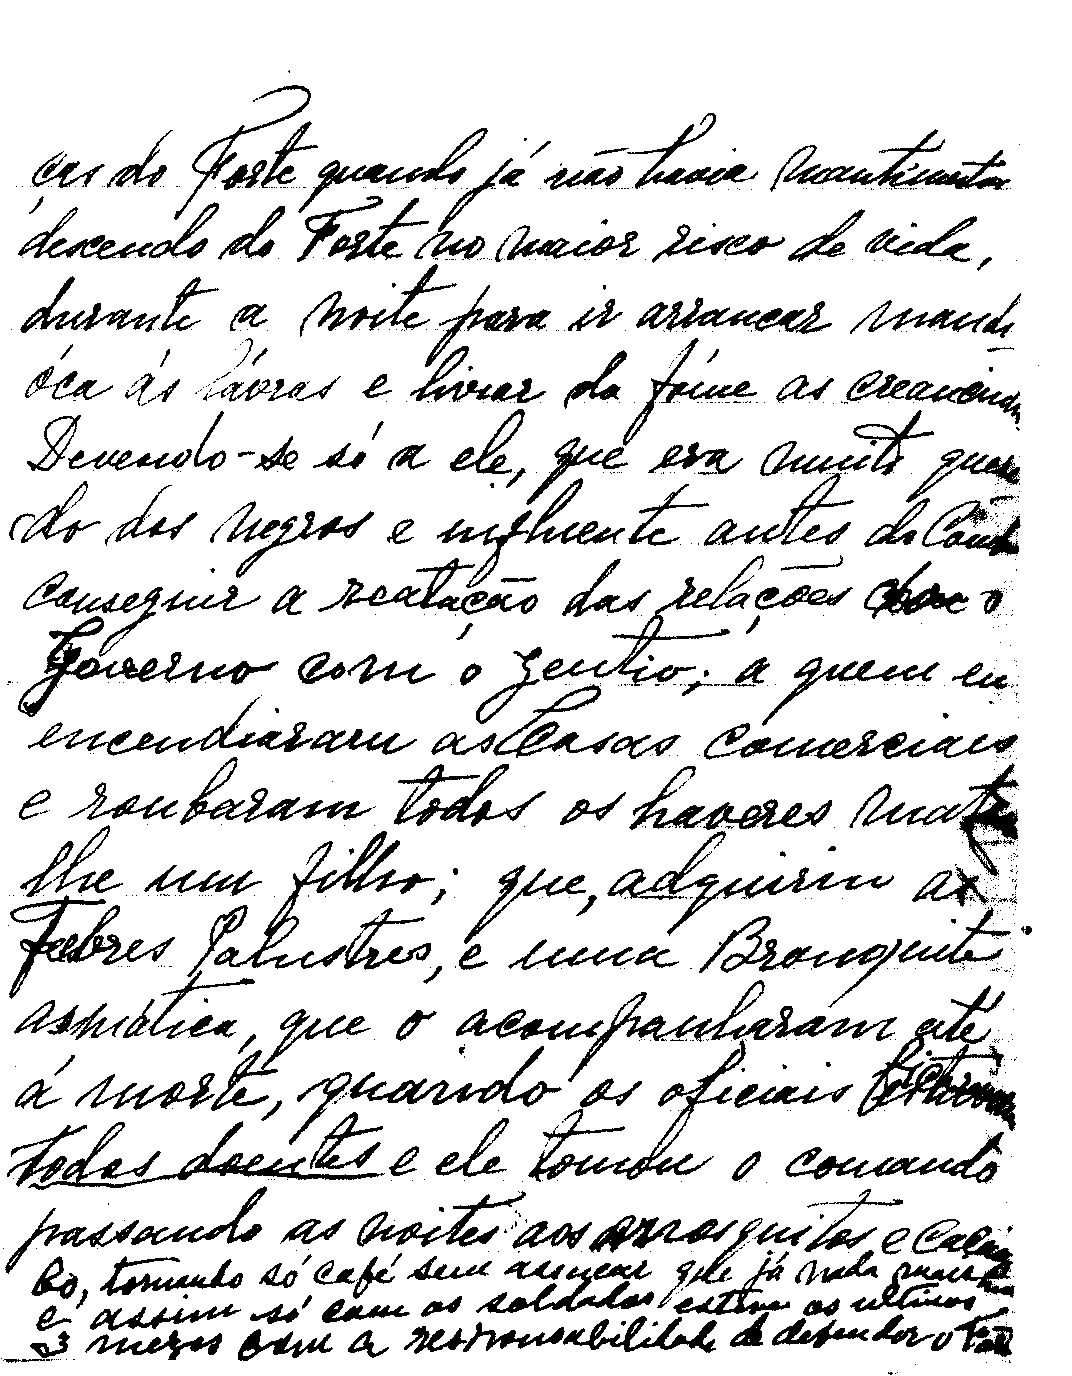 ças do Forte quando já não havia mantimentos
descendo do Forte no maior risco de vida,
durante a noite para ir arrancar mandi
óca ás lávras e livrar da fóme as creancinhas
Devendo-se só a ele, que era muito queri
do dos negros e influente antes do
conseguir a reatação das relações do
Governo com o gentio; a quem
encendiaram as Casas comerciais
e roubaram todos os haveres
lhe um filho; que, adquiriu as
Febres Palustres, e uma Bronquite
asmática, que o acompanharam até
á morte, quando os oficiais
todos doentes e ele tomou o comando
passando as noites aos mosquitos e
bo, tomando só café sem assucar que já nada mais
e assim só com os soldados esteve os ultimos
3 mezes com a responsabilidade de defender o Forte